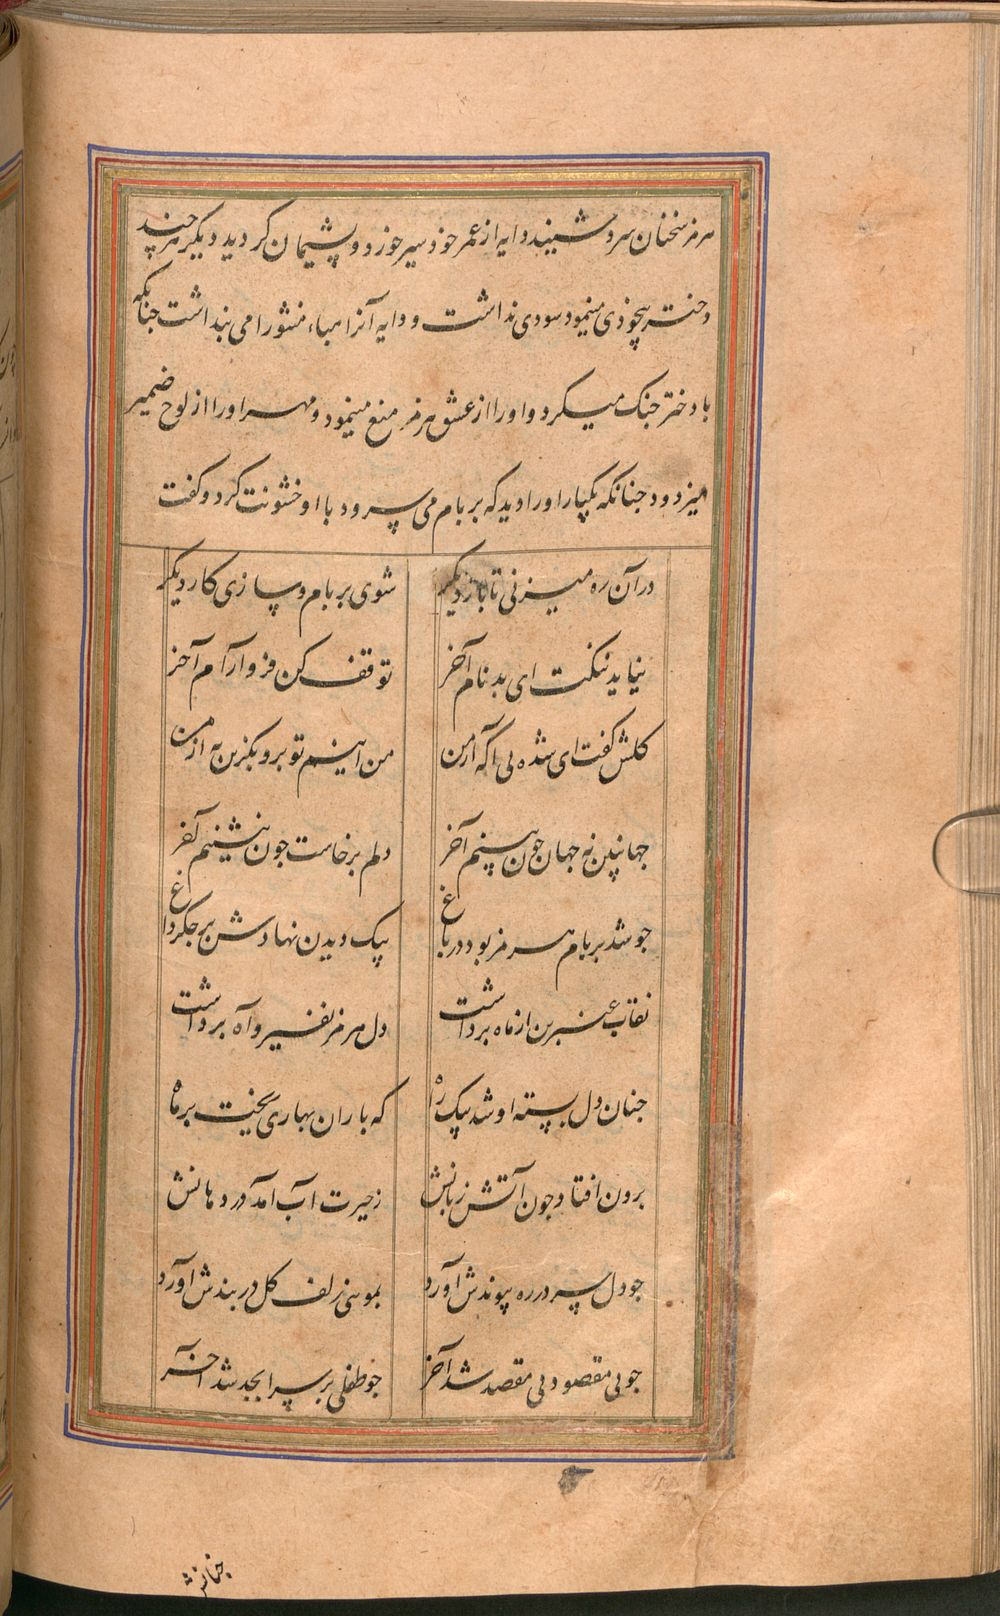 هرمز سخنان سرد شنید دایه از عمر خود سیر خورد و پشیمان کردید دیکر هرچند
دختر بیخودی مینمود سودی نداشت و دایه آنرا هباء منثورا می پنداشت جنانکه
با دختر جنک میکرد و او را از عشق هرمز منع مینمود و مهر او را از لوح ضمیر
میزدود جنانکه یکبار او را دید که بر بام می پرود با او خشونت کرد و کفت
در آن ره میزنی تا باز دیکر شوی بر بام و سازی کار دیکر
نیاید ننکت ای بدنام آخر توقف کن فرو آرام آخر
کلش کفت ای شده بی آکه از من من اینم تو برو بکزین به از من
جهانبین نه جهان جون بینم آخر دلم برخاست جون بنشینم آخر
جو شد بر بام هرمز بود در باغ بیک دیدن نهادش بر جکر داغ
نقاب عنبرین از ماه برداشت دل هرمز نفیر و آه برداشت
جنان دل بسته او شد بیک راه که باران بهاری ریخت بر ماه
برون افتاد جون آتش زبانش ز حیرت آب آمد در دهانش
جو دل سر در ره پیوندش آورد بموئی زلف کل در بندش آورد
جو بی مقصود بی مقصد شد آخر جو طفلی بر سر ابجد شد آخر
جنانش